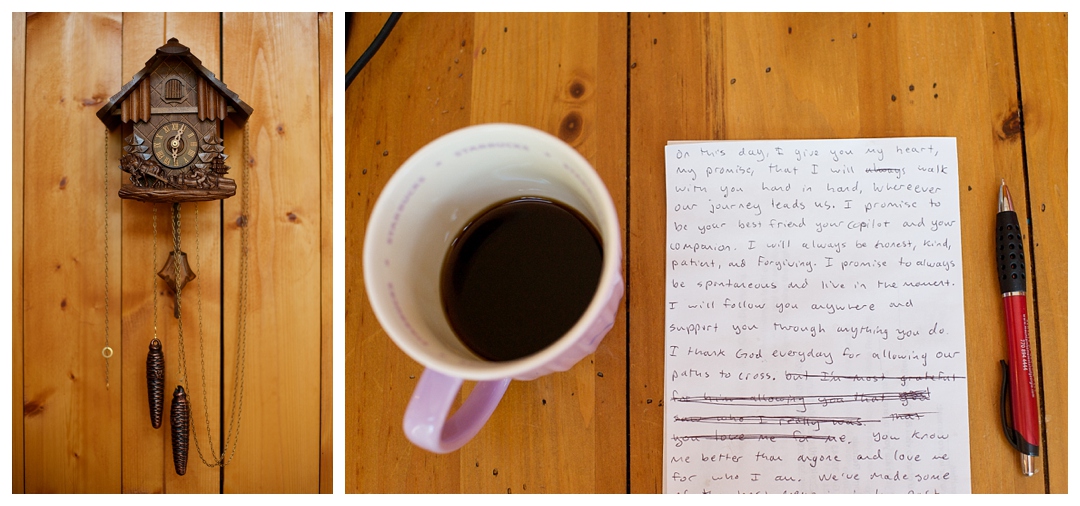 STARBUCKS
On this day, I give you my heart,
my promise, that I will always walk
with you hand in hand, whereever
our journey leads us. I promise to
be your best friend your copilot and your
companion. I will always be honest, kind,
patient, and forgiving. I promise to always
be spontaneous and live in the moment.
I will follow you anywhere and
support you through anything you do.
I thank God everyday for allowing our
paths to cross. but I'm most grateful
for him allowing you that
saw who I really was. that
you love me for me. You know
me better than anyone and love me
for who I am. We've made some